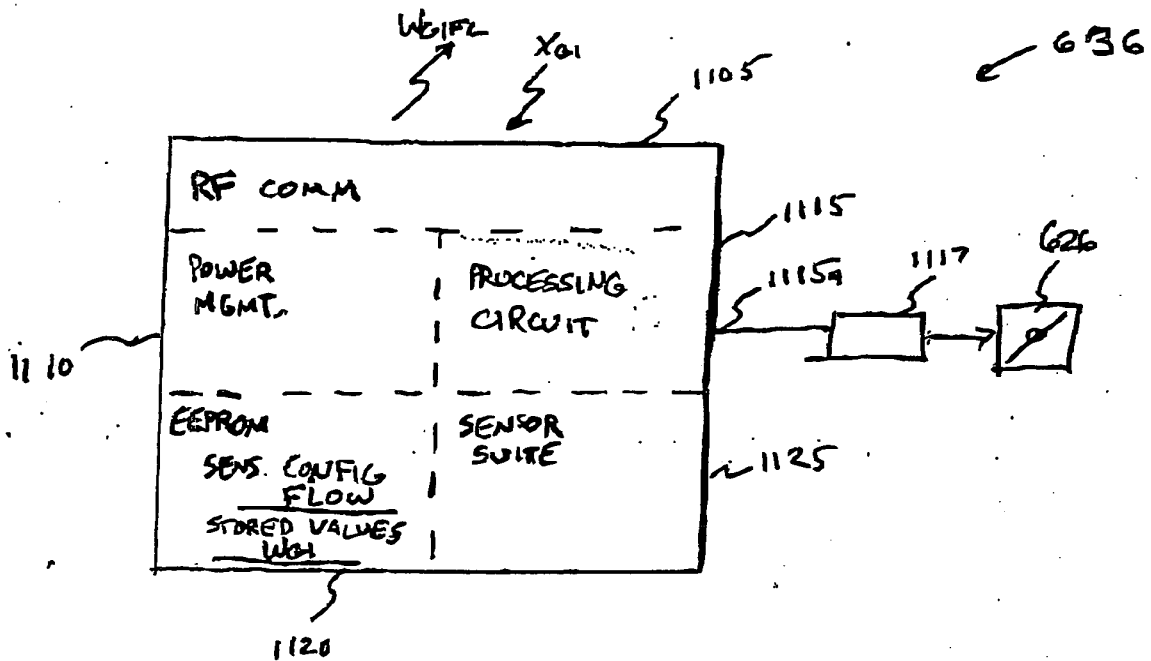 WG1FL
XG1
636
1105
RF COMM
1115
POWER
MGMT.
PROCESSING
CIRCUIT
1115a
1117
626
1110
EEPROM
SENS. CONFIG
FLOW
STORED VALUES
WG1
SENSOR
SUITE
1125
1120